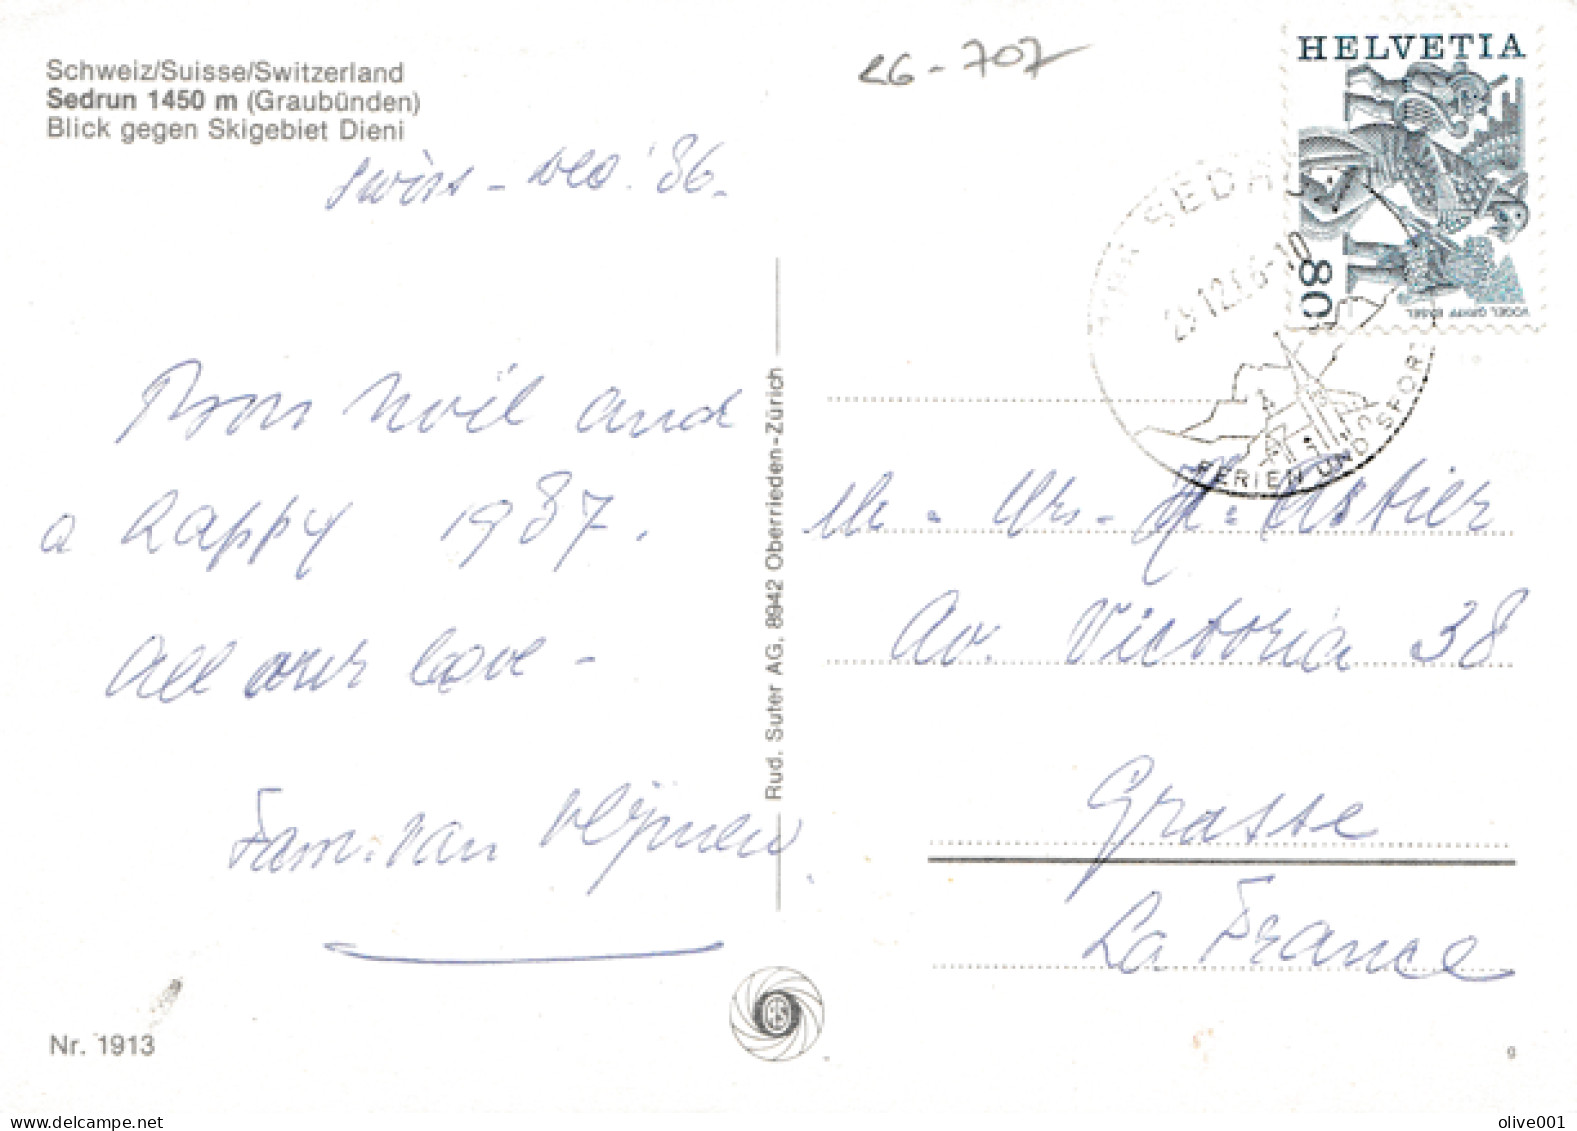 Schweiz/Suisse/Switzerland
Sedrun 1450 m (Graubünden)
Blick gegen Skigebiet Dieni
Swiss - dec. '86.
Bon Noël and
a happy 1987.
All our love -
Fam. van
Nr. 1913
Rud. Suter AG, 8942 Oberrieden-Zürich
26-707
HELVETIA
80
SEDRUN
FERIEN UND SPORT
M. - Mrs - H. Astier
Av. Victoria 38
Grasse
La France
9
olive001